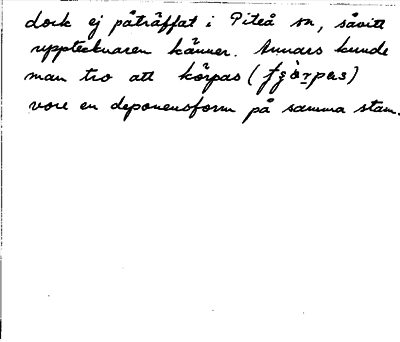 dock ej påträffat i Piteå sn, såvitt
upptecknaren känner. Annars kunde
man tro att körpas (fʒàrpas)
vore en deponensform på samma stam.